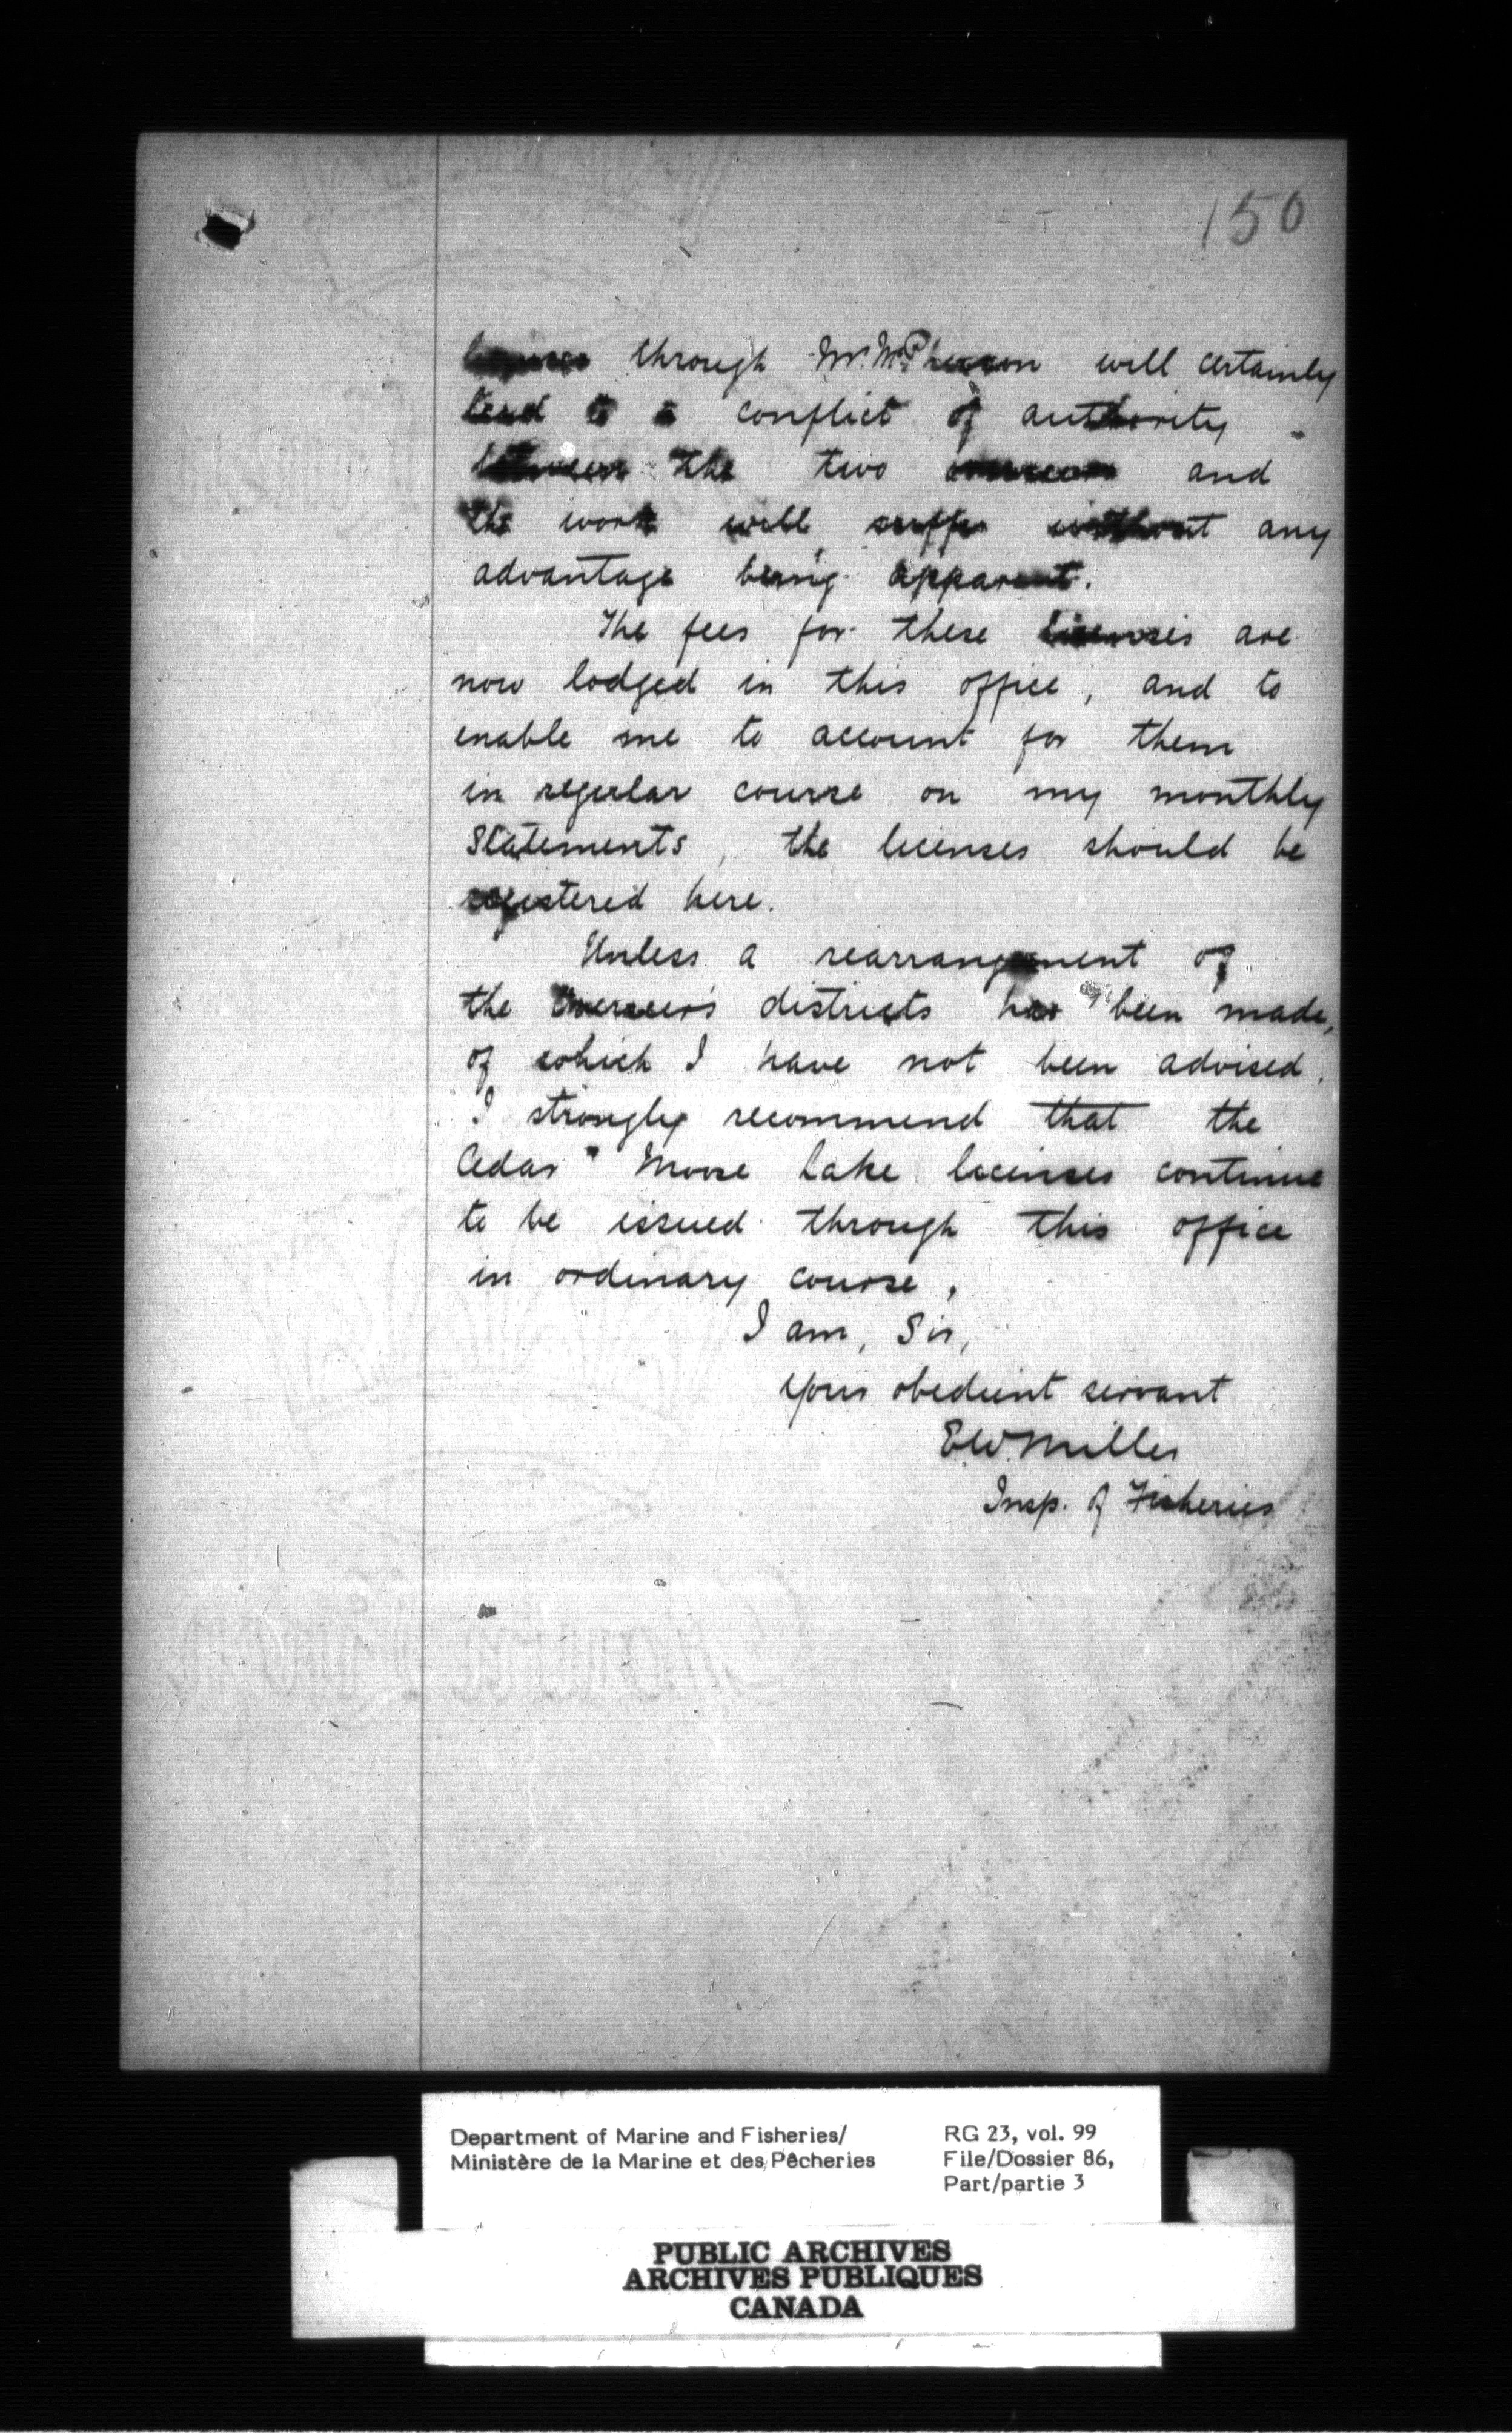 150
through Mr. McPherson will certainly
tend to a conflict of authority
between the two overseers and
the work will suffer without any
advantage being apparent.
The fees for these licenses are
now lodged in this office, and to
enable me to account for them
in regular course on my monthly
Statements, the licenses should be
registered here.
Unless a rearrangement of
the Overseer's districts has been made,
of which I have not been advised,
I strongly recommend that the
Cedar " Moose Lake licenses continue
to be issued through this office
in ordinary course,
I am, Sir,
Your obedient servant
E.W. Miller
Insp. of Fisheries
Department of Marine and Fisheries/
Ministère de la Marine et des Pêcheries
RG 23, vol. 99
File/Dossier 86,
Part/partie 3
PUBLIC ARCHIVES
ARCHIVES PUBLIQUES
CANADA